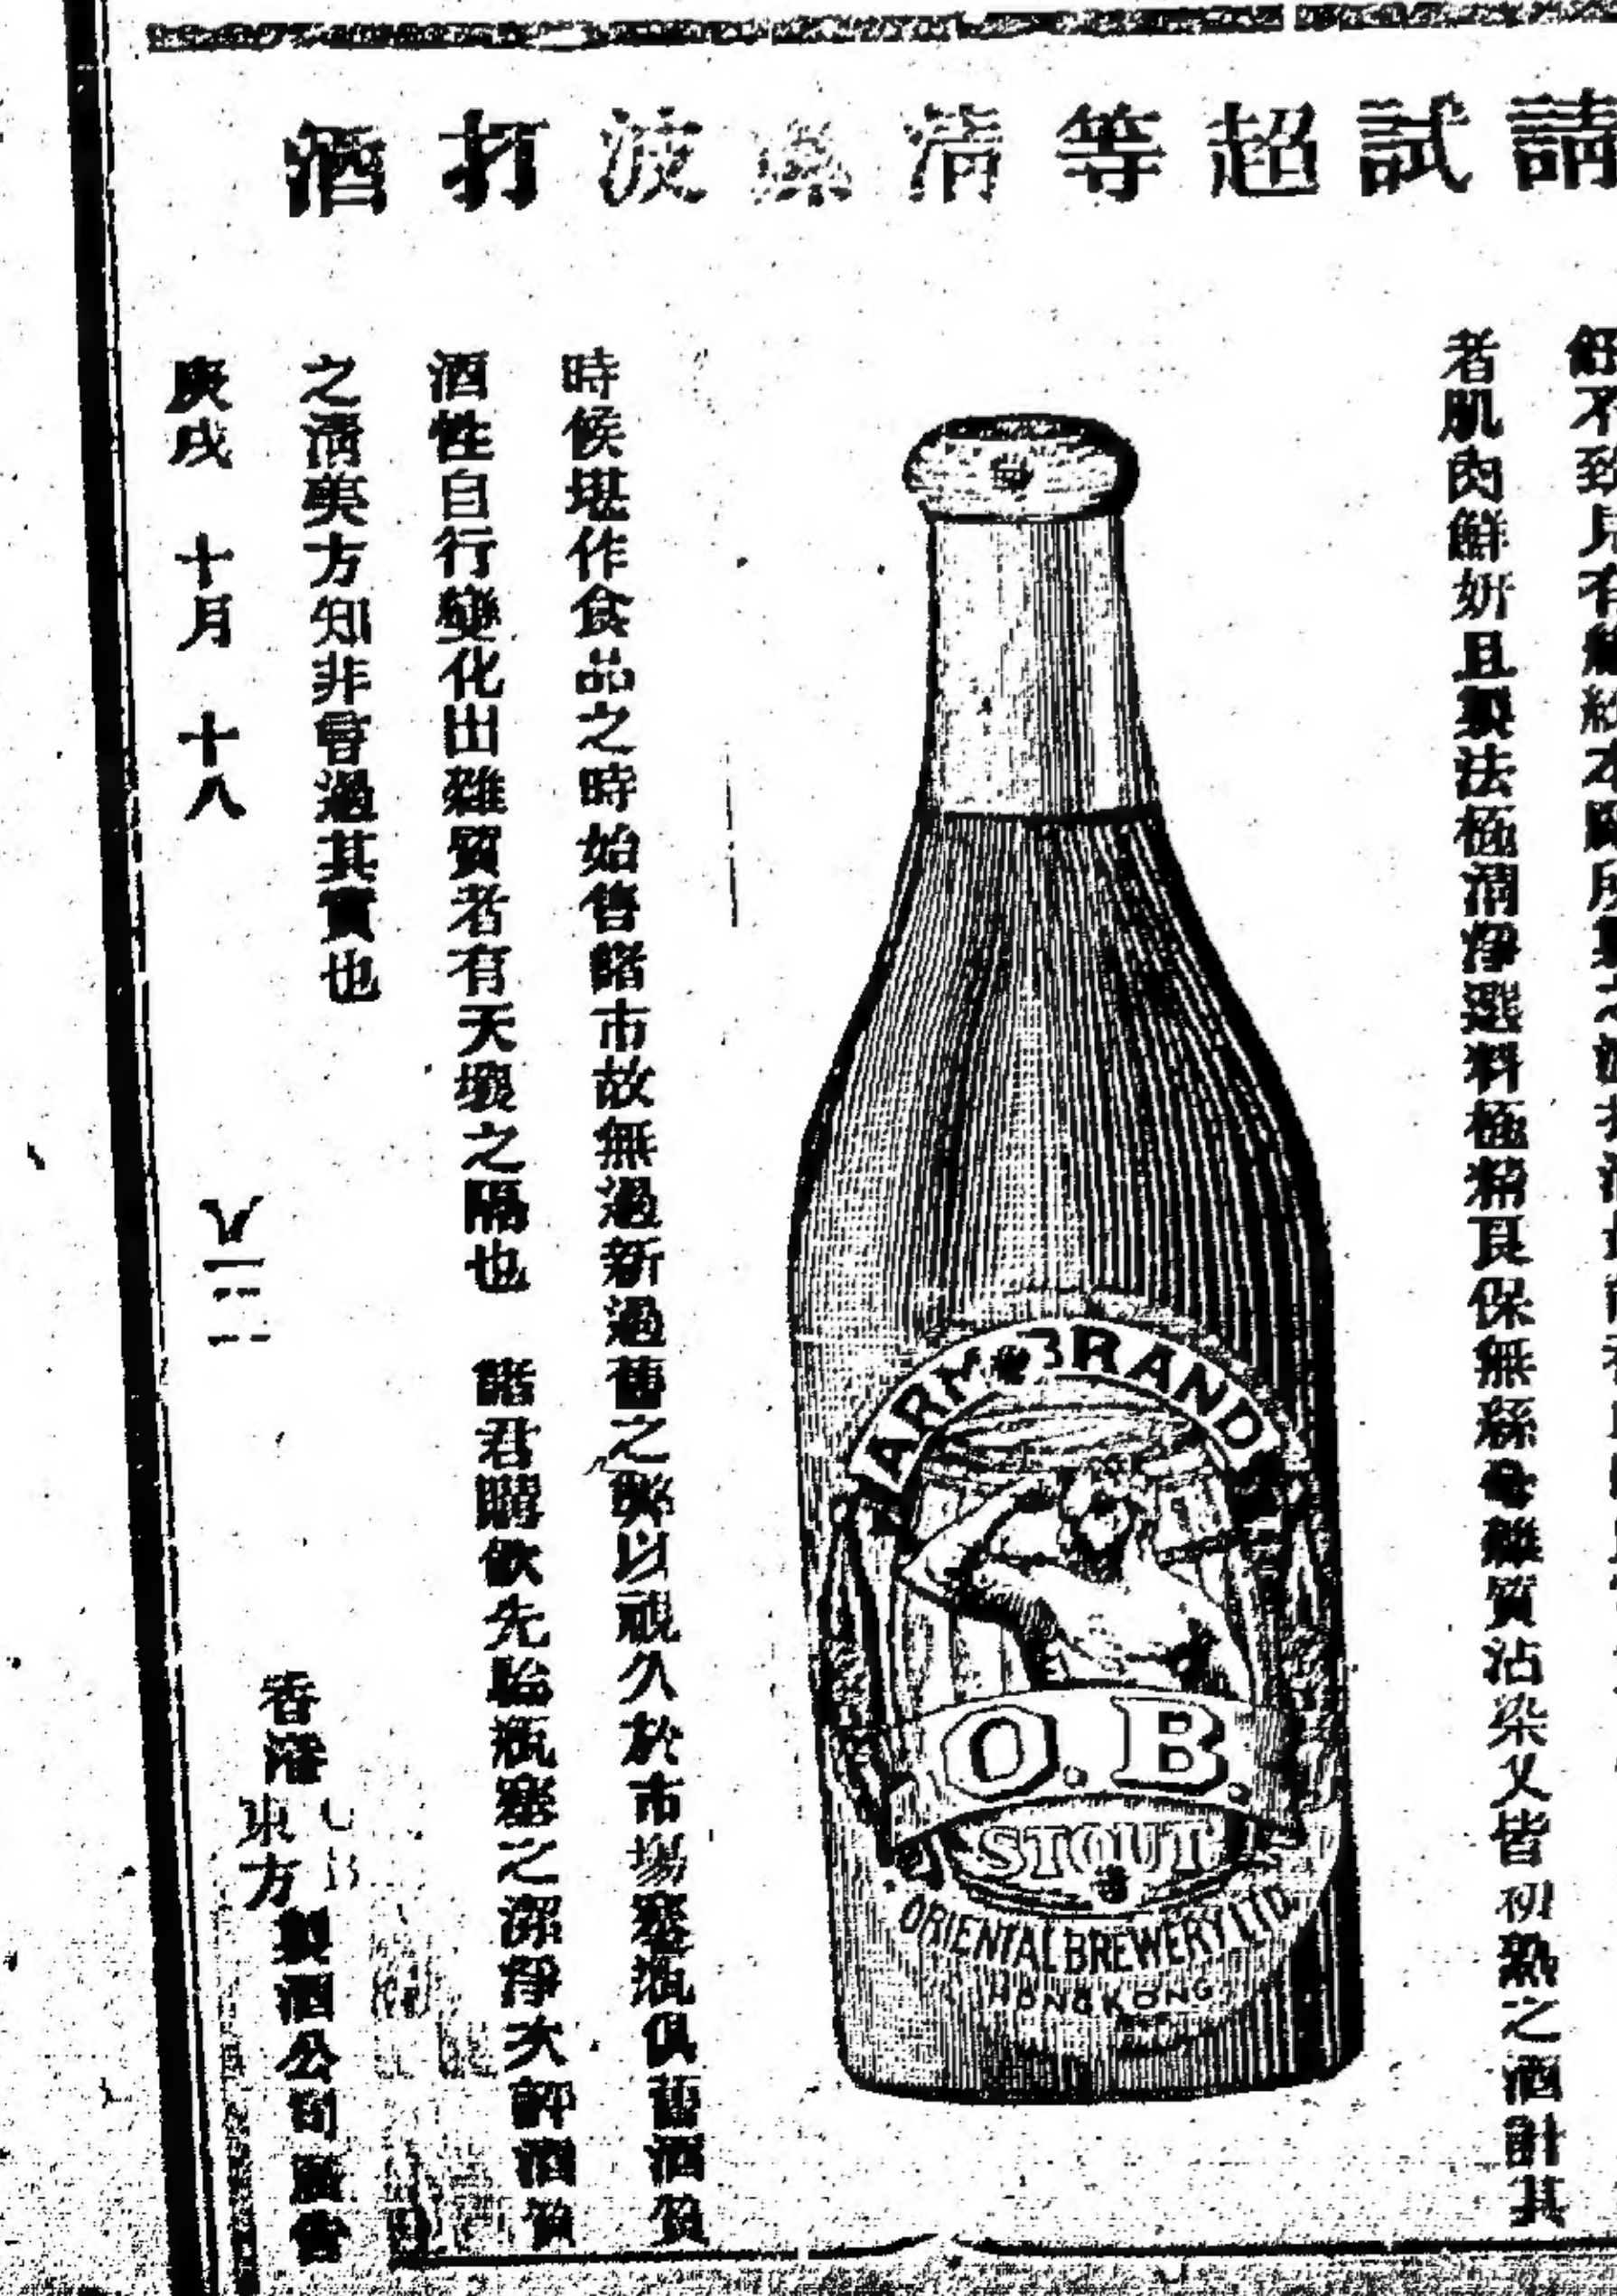 請試超等清燕波打酒
者肌肉鮮妍且製法極清淨選料極精良保無絲毫雜質沾染又皆初熟之酒計其
ARM BRAND
O.B.
STOUT
ORIENTAL BREWERY LTD.
HONGKONG
時候堪作食品之時始售諸市故無過新過舊之弊以視久於市場塞瓶俱舊酒質
酒性自行變化出雜質者有天壤之隔也 諸君購飲先驗瓶塞之潔淨次評酒質
之清美方知非言過其實也
香港 東方 製酒公司 啟
庚戌 十月 十八